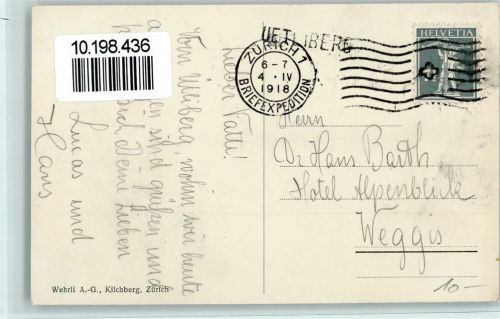 10.198.436
UETLIBERG
ZÜRICH 1
6-7
4. IV
1918
BRIEFEXPEDITION
HELVETIA
Lieber Vatti!
Vom Ütliberg wohin wir heute
sind grüßen
Dich Deine Lieben
Lucas und
Hans
Herrn
Dr Hans Barth
Hotel Alpenblick
Weggis
Wehrli A.-G., Kilchberg, Zürich
10-